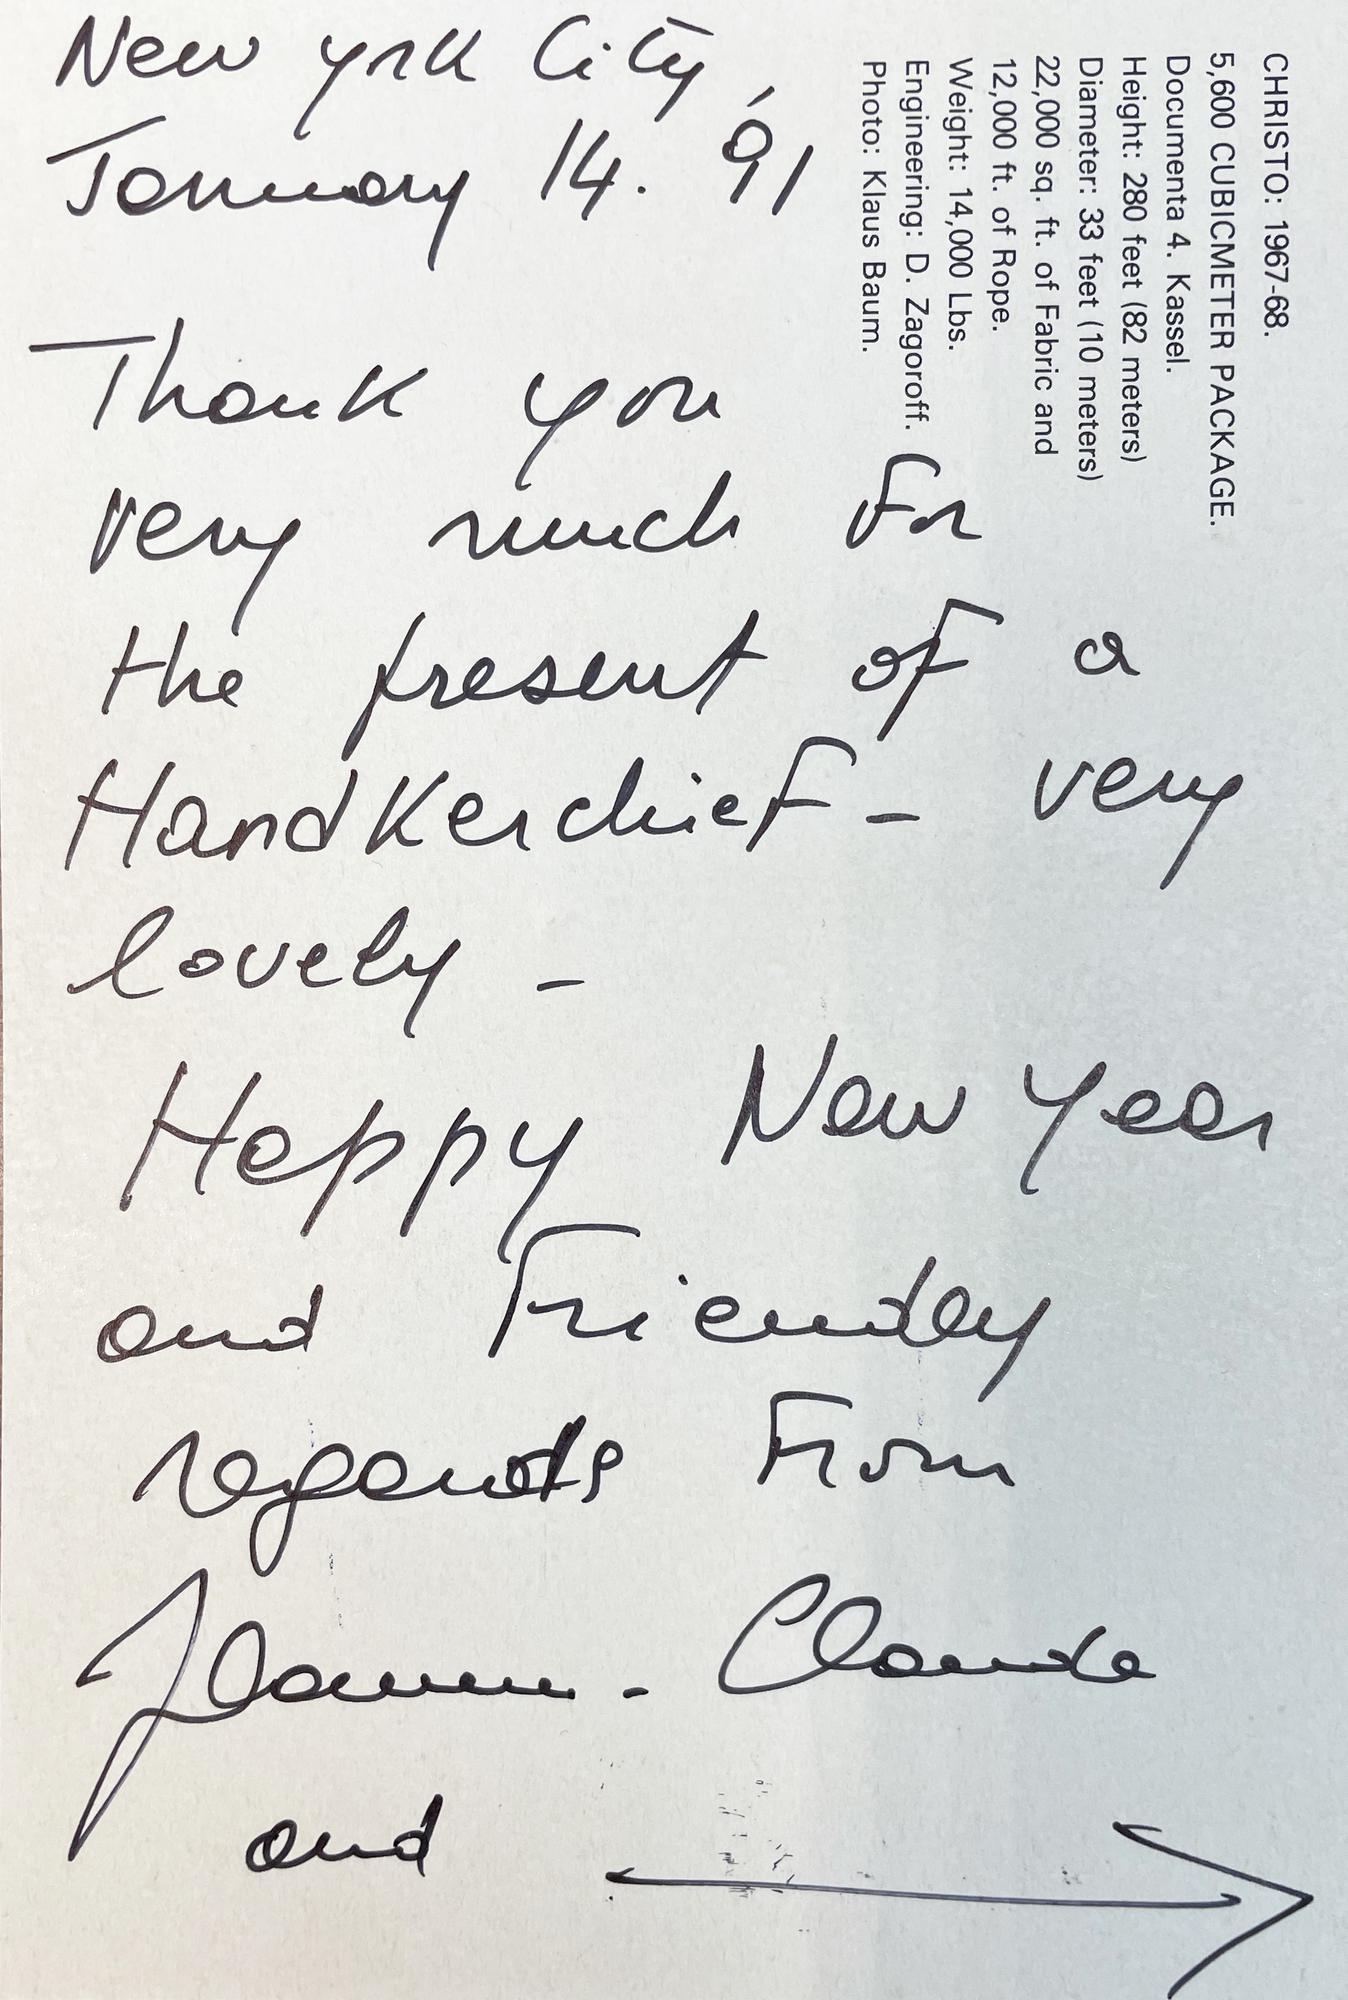 New York City,
January 14. 91
Thank you
very much for
the present of a
HandKerchief - very
lovely -
Happy New Year
and Friendly
regards From
Jeanne-Claude
and
CHRISTO: 1967-68.
5,600 CUBICMETER PACKAGE.
Documenta 4. Kassel.
Height: 280 feet (82 meters)
Diameter: 33 feet (10 meters)
22,000 sq. ft. of Fabric and
12,000 ft. of Rope.
Weight: 14,000 Lbs.
Engineering: D. Zagoroff.
Photo: Klaus Baum.